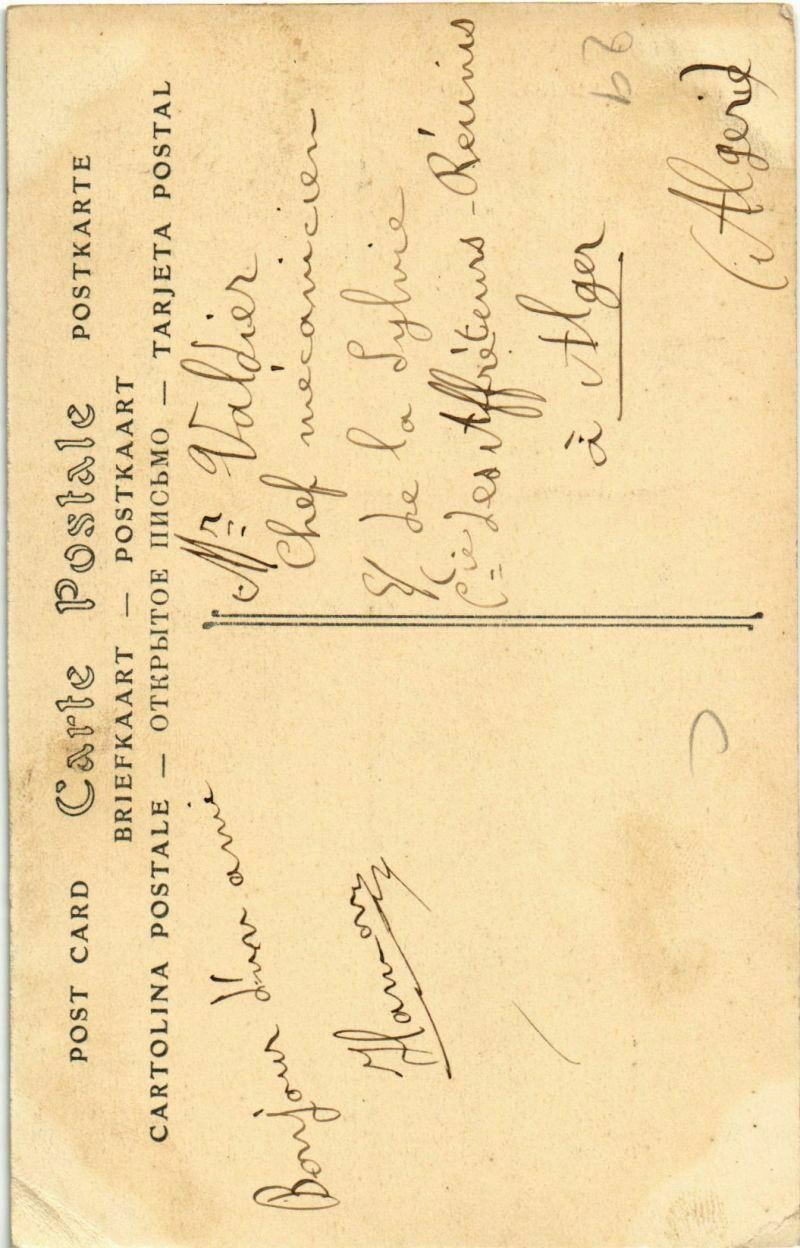 POST CARD Carte Postale POSTKARTE
BRIEFKAART — POSTKAART
CARTOLINA POSTALE — ОТКРЫТОЕ ПИСЬМО — TARJETA POSTAL
Bonjour d'un ami
Mr Valdier
Chef mécanicien
S/ de la Sylvie
Cie des Affréteurs-Réunis
à Alger
(Algerie)